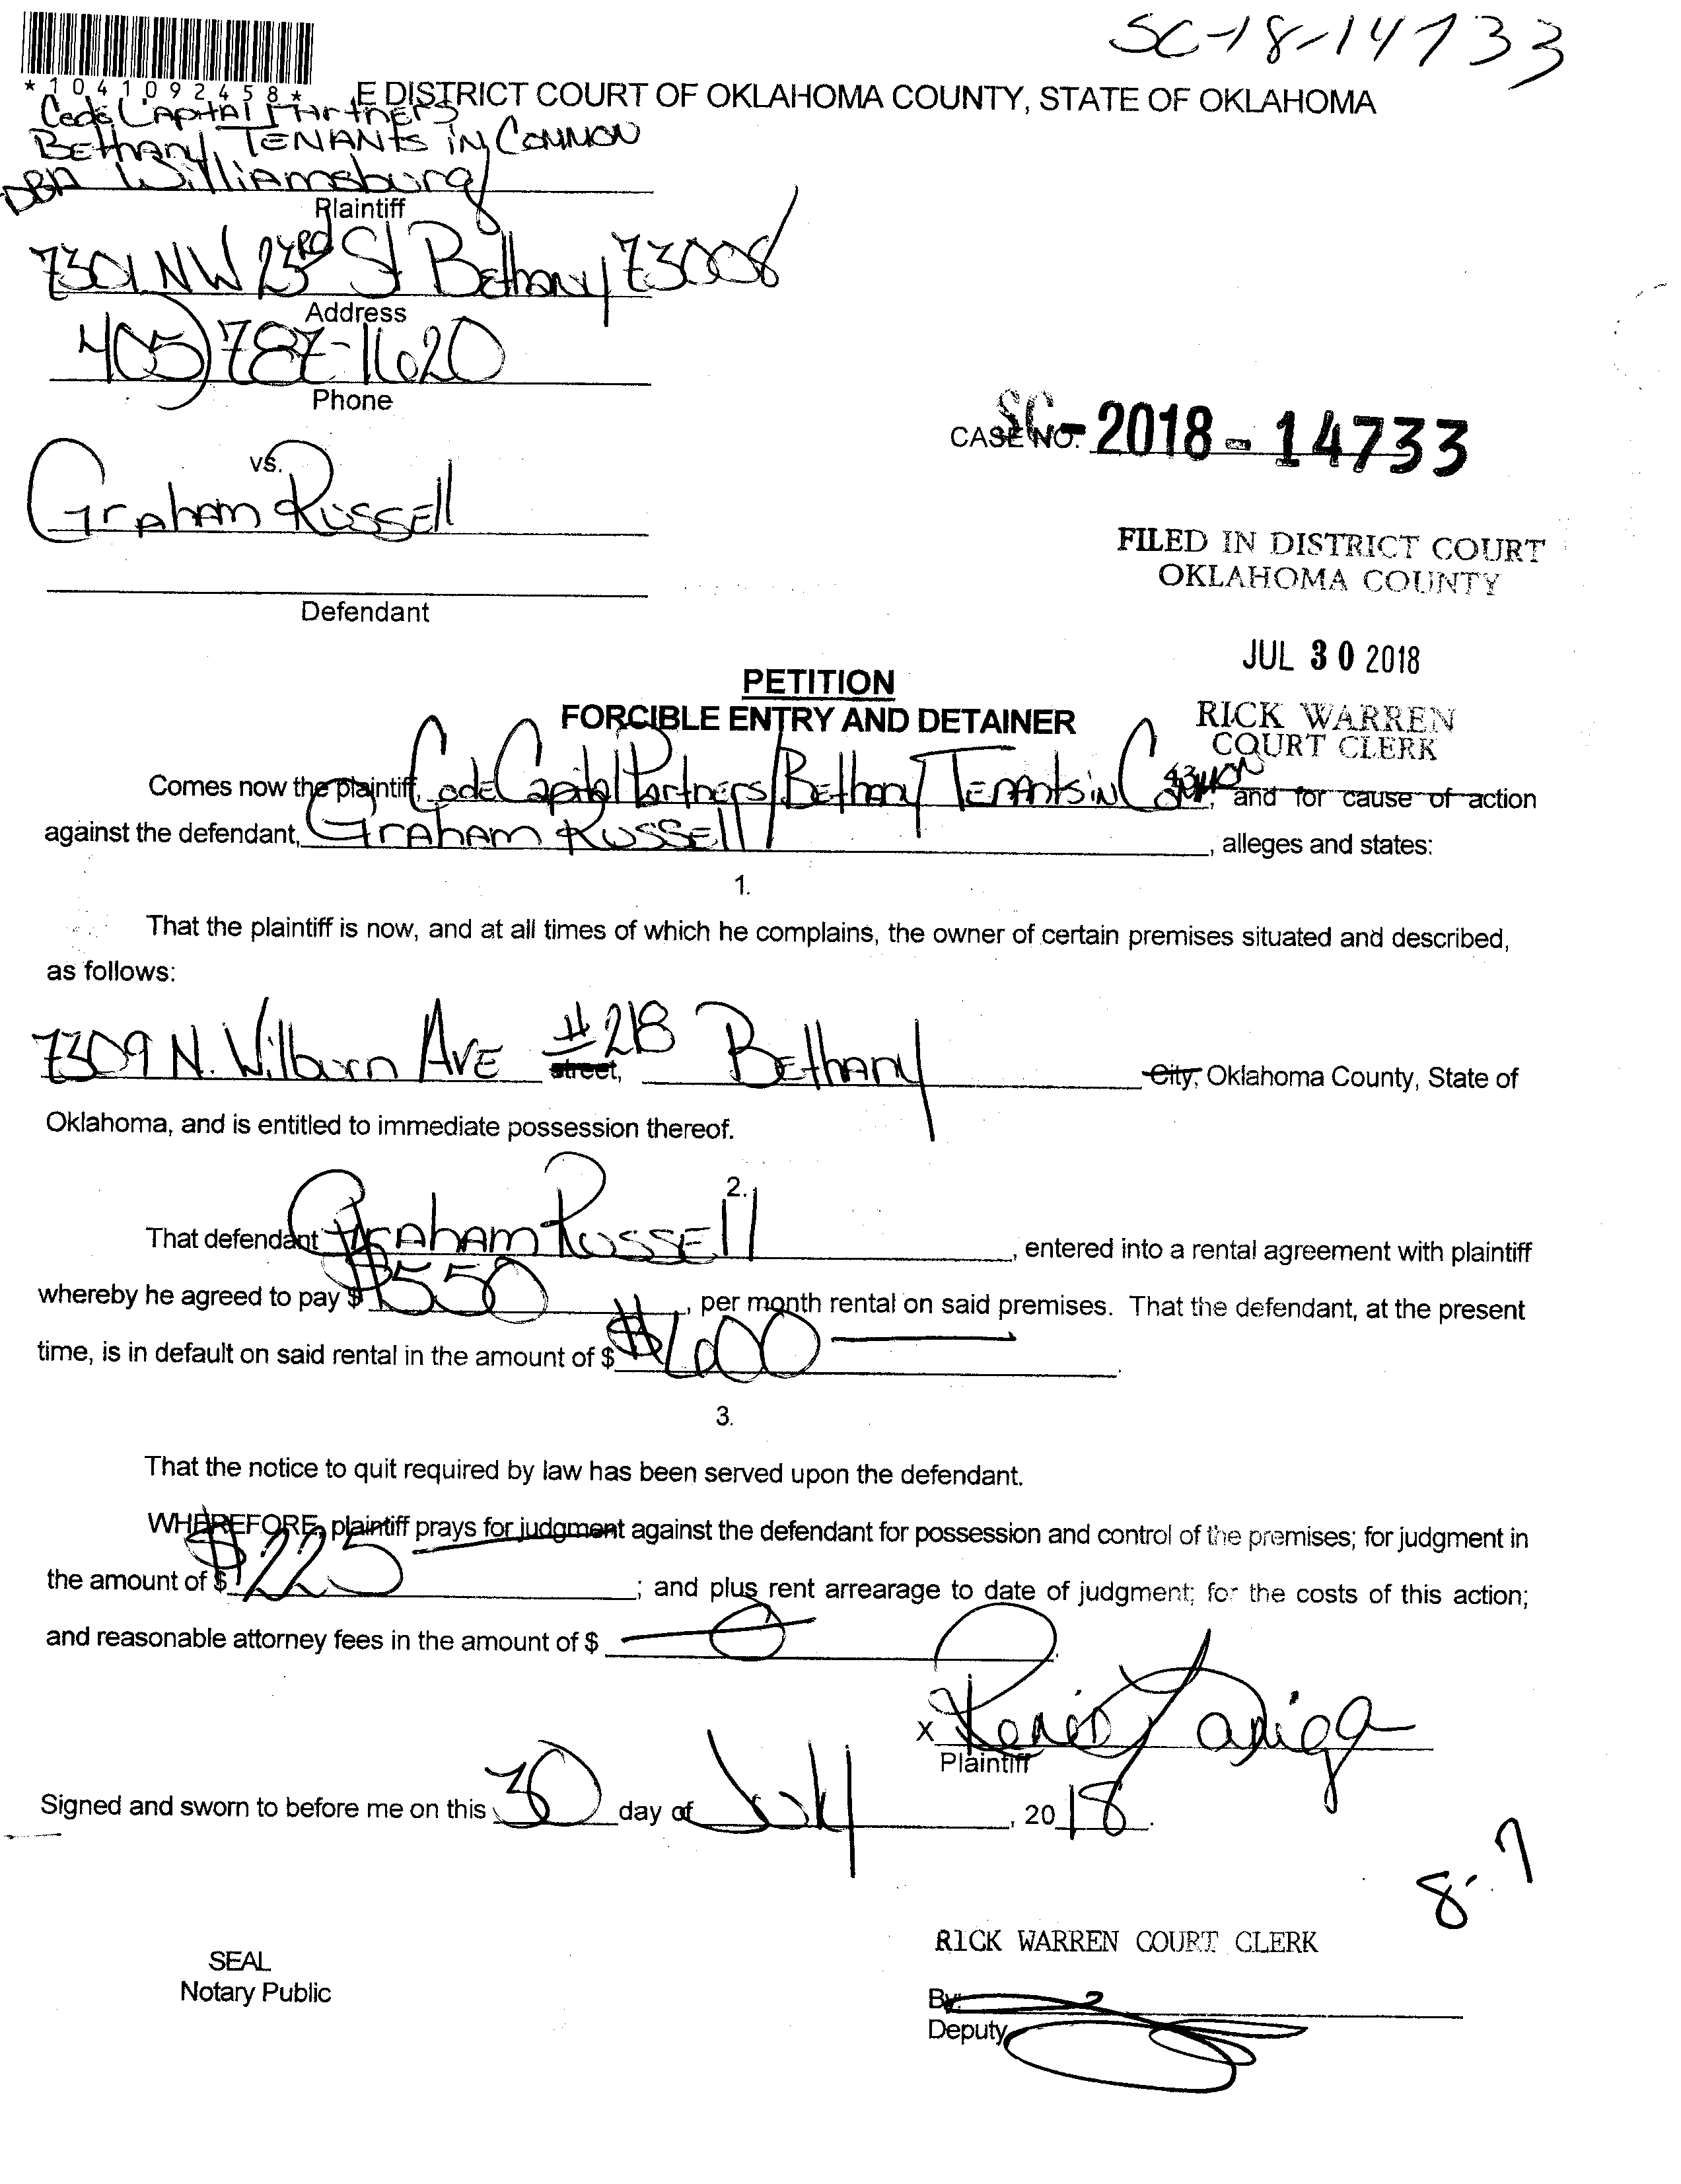 SC-18-14733
*1041092458*
E DISTRICT COURT OF OKLAHOMA COUNTY, STATE OF OKLAHOMA
Code CApitAl PArtnErs
BEthany TENANts iN COMMON
DBA WilliAmsburg
Plaintiff
7301 NW 23RD St BEthany 73008
Address
405) 787-1620
Phone
CASE NO. SC-2018-14733
vs.
GrAhAm RussEll
FILED IN DISTRICT COURT
OKLAHOMA COUNTY
Defendant
JUL 30 2018
PETITION
FORCIBLE ENTRY AND DETAINER
RICK WARREN
COURT CLERK
43
Comes now the plaintiff, Code Capital Partners/Bethany TENANts iN Common, and for cause of action
against the defendant, GrAhAm RussEll, alleges and states:
1.
That the plaintiff is now, and at all times of which he complains, the owner of certain premises situated and described,
as follows:
7309 N. Wilburn AvE #218 street, BEthany City, Oklahoma County, State of
Oklahoma, and is entitled to immediate possession thereof.
2.
That defendant GrAhAm RussEll, entered into a rental agreement with plaintiff
whereby he agreed to pay $ $550, per month rental on said premises. That the defendant, at the present
time, is in default on said rental in the amount of $ $600.
3.
That the notice to quit required by law has been served upon the defendant.
WHEREFORE, plaintiff prays for judgment against the defendant for possession and control of the premises; for judgment in
the amount of $ $225; and plus rent arrearage to date of judgment; for the costs of this action;
and reasonable attorney fees in the amount of $ 0.
X
Plaintiff
Signed and sworn to before me on this 30 day of July, 2018.
8-7
RICK WARREN COURT CLERK
SEAL
Notary Public
By:
Deputy